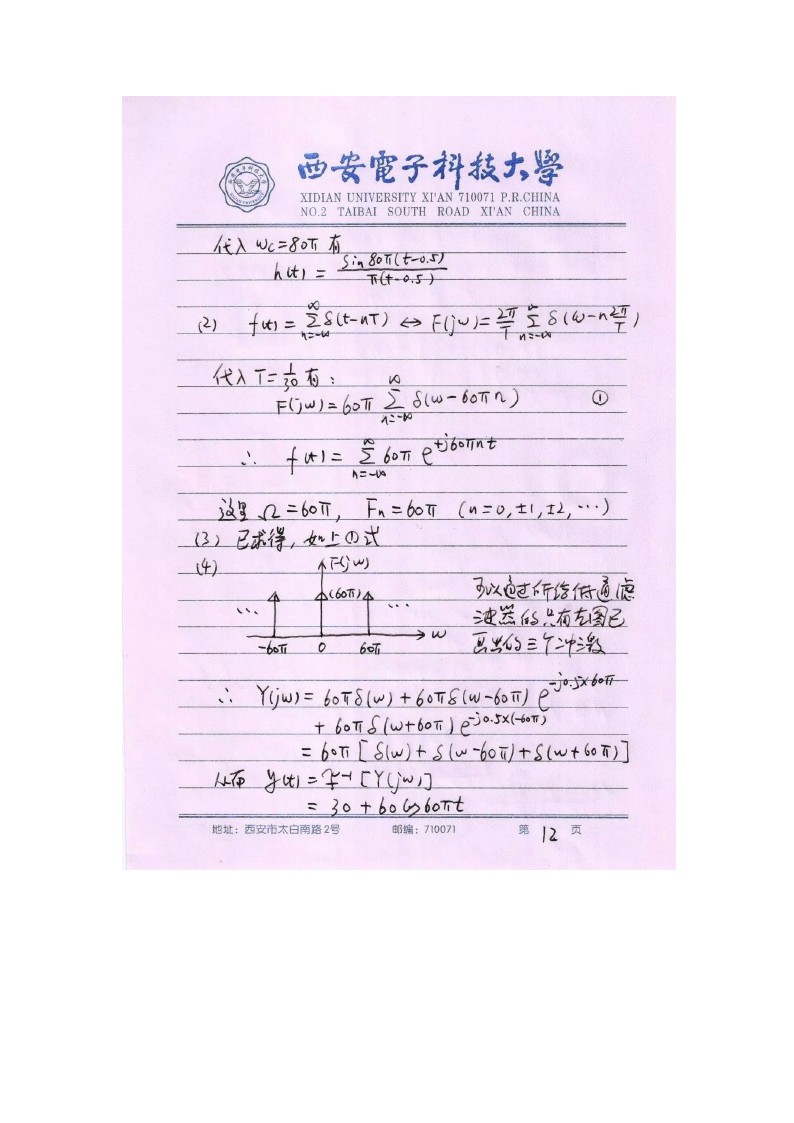 西安電子科技大學
XIDIAN UNIVERSITY XI'AN 710071 P.R.CHINA
NO.2 TAIBAI SOUTH ROAD XI'AN CHINA
代入 ωc=80π 有
h(t) = sin80π(t-0.5) / π(t-0.5)
(2) f(t) = ∑_{n=-∞}^{∞} δ(t-nT) ↔ F(jω) = 2π/T ∑_{n=-∞}^{∞} δ(ω-n2π/T)
代入 T=1/30 有:
F(jω) = 60π ∑_{n=-∞}^{∞} δ(ω-60πn) ①
∴ f(t) = ∑_{n=-∞}^{∞} 60π e^{+j60πnt}
这里 Ω=60π, Fn=60π (n=0,±1,±2,…)
(3) 已求得, 如上①式
(4) F(jω)
(60π)
… …
-60π 0 60π ω
可以通过所给低通滤
波器的只有左图已
画出的三个冲激
∴ Y(jω) = 60πδ(ω) + 60πδ(ω-60π) e^{-j0.5×60π}
+ 60πδ(ω+60π) e^{-j0.5×(-60π)}
= 60π[δ(ω)+δ(ω-60π)+δ(ω+60π)]
从而 y(t) = F⁻¹[Y(jω)]
= 30 + 60cos60πt
地址: 西安市太白南路2号 邮编: 710071 第 12 页